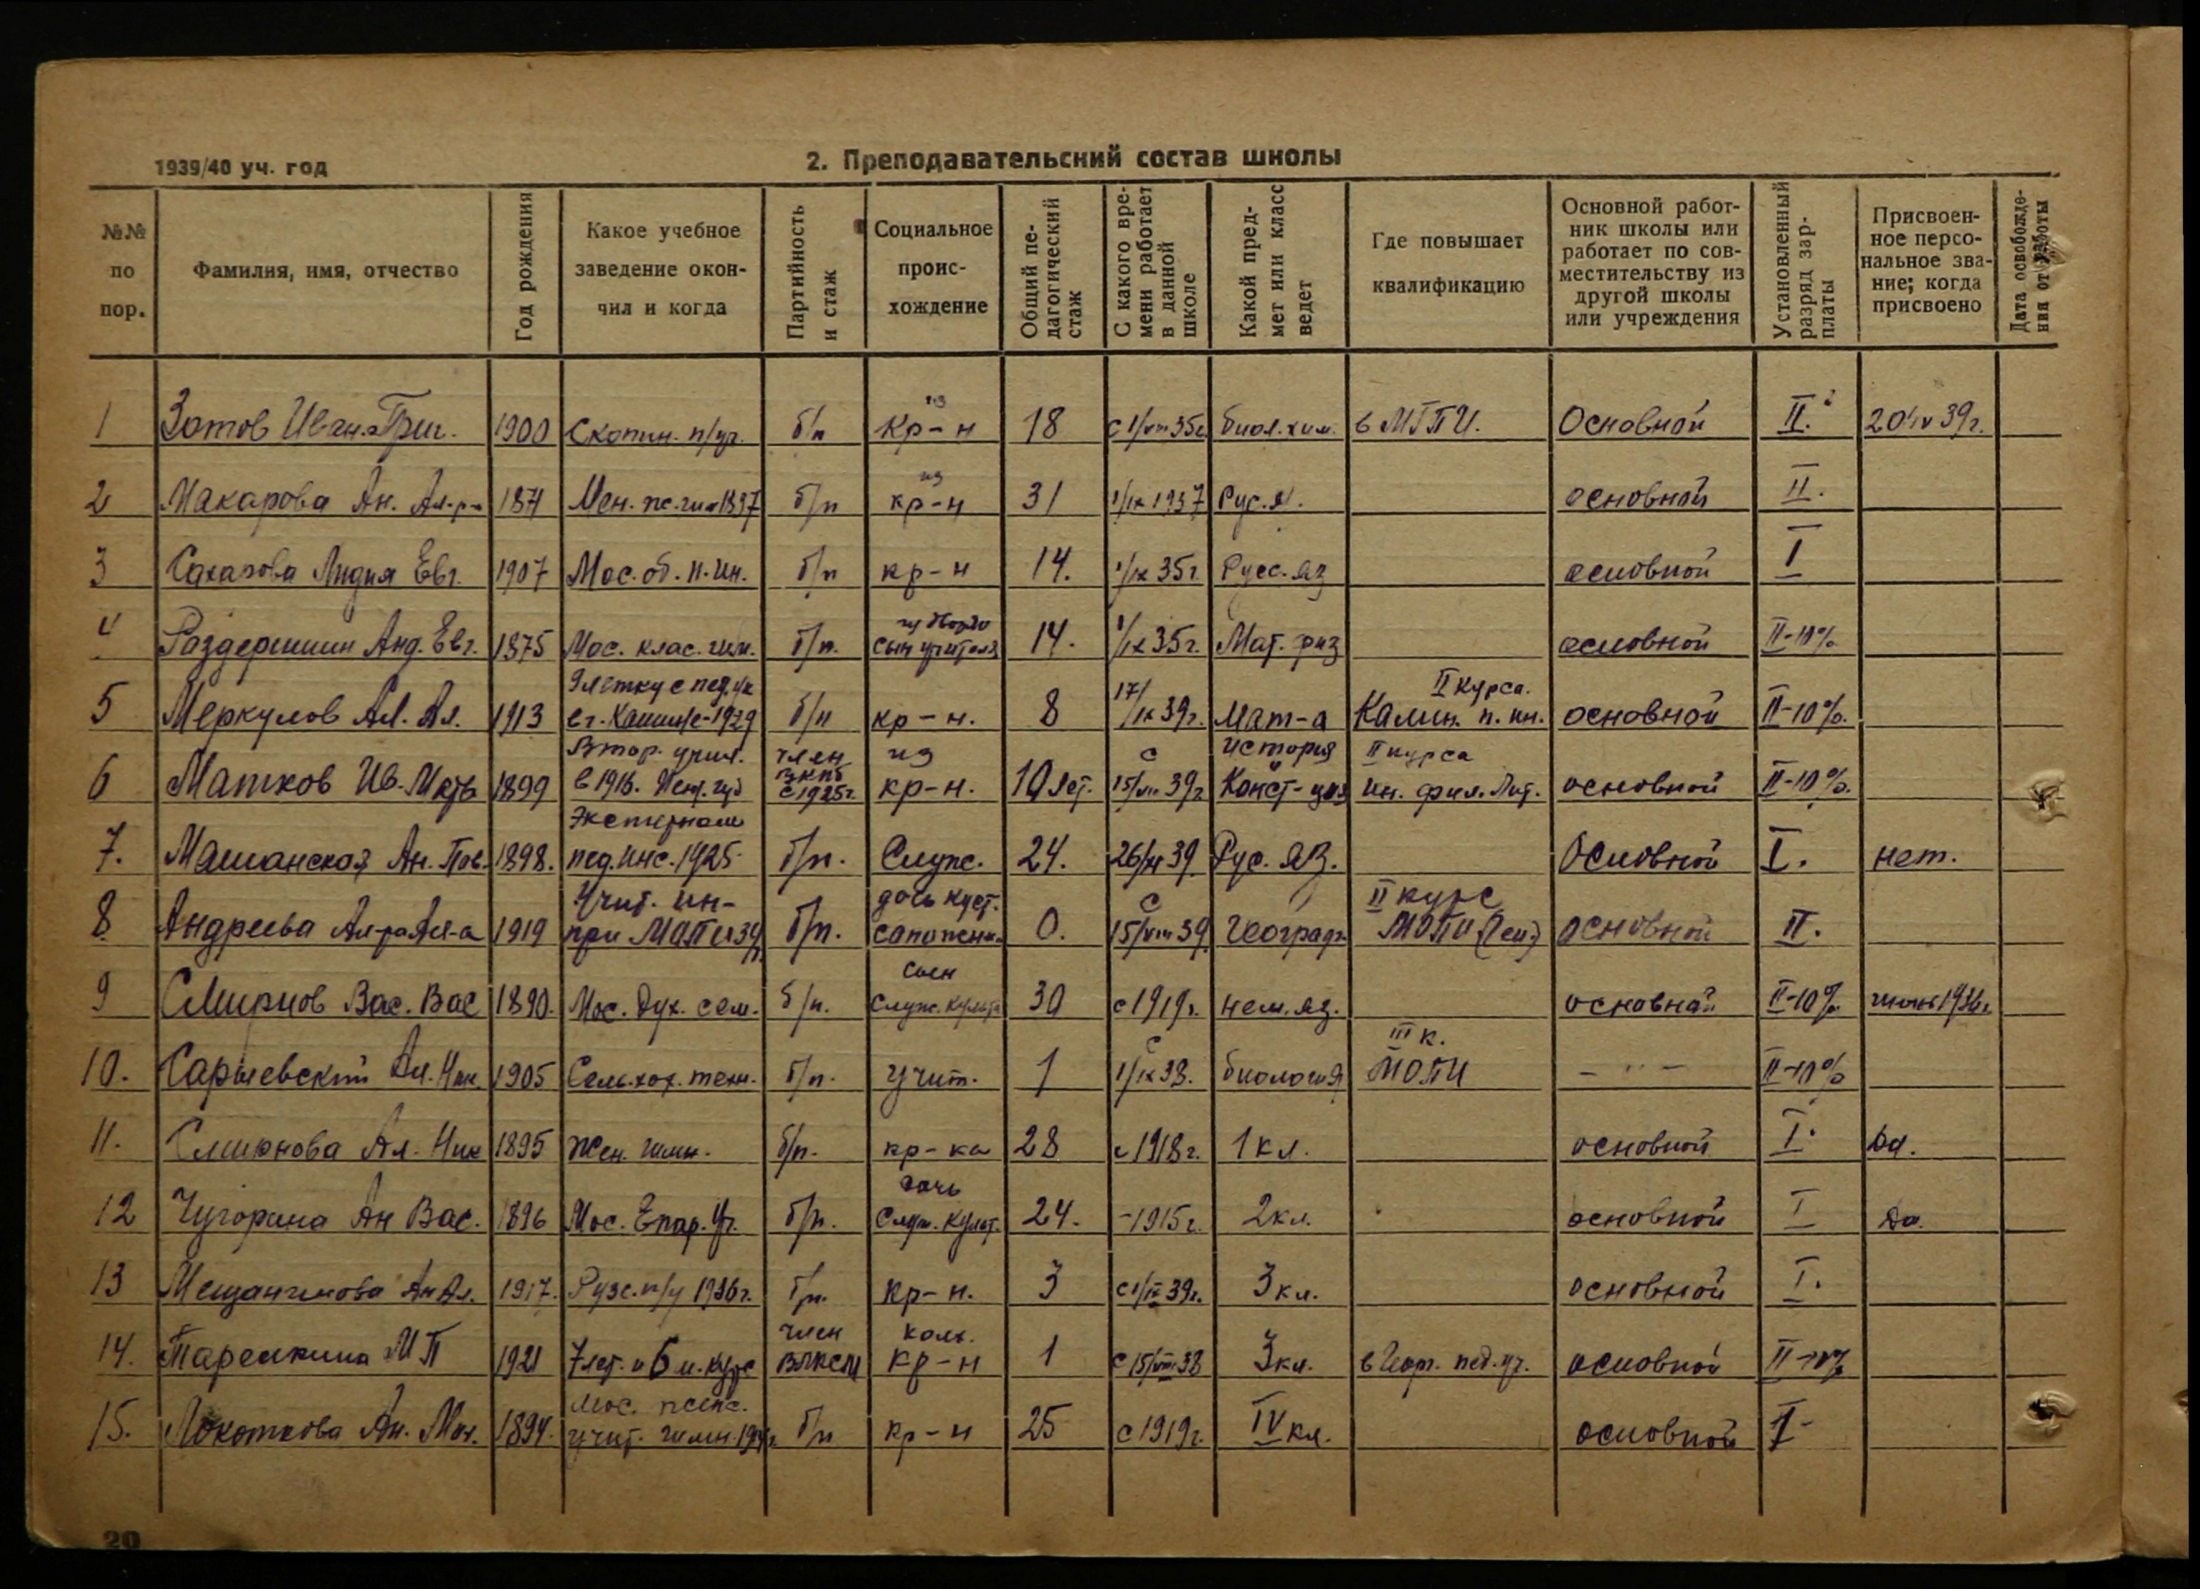 1939/40 уч. год
2. Преподавательский состав школы
№№ по пор.
Фамилия, имя, отчество
Год рождения
Какое учебное заведение окончил и когда
Партийность и стаж
Социальное происхождение
Общий педагогический стаж
С какого времени работает в данной школе
Какой предмет или класс ведет
Где повышает квалификацию
Основной работник школы или работает по совместительству из другой школы или учреждения
Установленный разряд зарплаты
Присвоенное персональное звание; когда присвоено
Дата освобождения от работы
1 Зотов Иван Григ. 1900 Скопин. п/уч. б/п из кр-н 18 с 1/VIII 35г. биол. хим. в МГПИ. Основной II. 20/IV 39г.
2 Макарова Ан. Ал-р- 1871 Мен. ж. гим 1897 б/п из кр-н 31 1/IX 1937 Рус. я. основной II.
3 Сахарова Лидия Евг. 1907 Мос. об. п. ин. б/п кр-н 14. 1/IX 35г. Русс. яз основной I
4 Анд. Евг. 1875 Мос. клас. гим. б/п. сын учителя 14. 1/IX 35г. Мат. физ основной II-10%
5 Меркулов Ал. Ал. 1913 1929 б/п кр-н. 8 17/IX 39г. Мат-а II курса. Калин. п. ин. основной II-10%.
6 Матков Ив. 1899 Втор. учил. в 1916. член ВКПб с 1925г. из кр-н. 10 лет. с 15/VIII 39г. История и Конст-ция II курса ин. фил. Лит. основной II-10%.
7. Машанская Ан. Пав. 1898. Экстерном пед. инс. 1925 б/п. Служ. 24. 26/XI 39. Рус. яз. Основной I. нет.
8. Андреева Ал-ра Ал-а 1919 Учит. ин- при МОПИ 39 б/п. дочь куст. сапожни. 0. с 15/VIII 39. Географ. II курс МОПИ основной II.
9 Смирнов Вас. Вас 1890. Мос. Дух. сем. б/п. сын служ. культа 30 с 1919г. нем. яз. основной II-10% 1936г.
10. Ал. Ник. 1905 Сель. хоз. техн. б/п. учит. 1 с 1/IX 38. биология III к. МОПИ - " - II-10%
11. Смирнова Ал. Ник 1895 Жен. гимн. б/п. кр-ка 28 с 1918г. 1 кл. основной I. Да.
12 Чугорина Ан Вас. 1896 Мос. Епар. Уч. б/п. дочь Служ. культ. 24. -1915г. 2 кл. основной I Да.
13 Ан Ал. 1917. Рузс. п/у 1936г. б/п. кр-н. 3 с 1/IX 39г. 3 кл. основной I.
14. Тарелкина М П 1921 7 лет. и 6 м. курс член ВЛКСМ колх. кр-н 1 с 15/VIII 38 3 кл. в пед. уч. основной II-10%
15. Локоткова Ан. Мих. 1894. Мос. женс. учит. гимн. б/п кр-н 25 с 1919г. IV кл. основной I
20